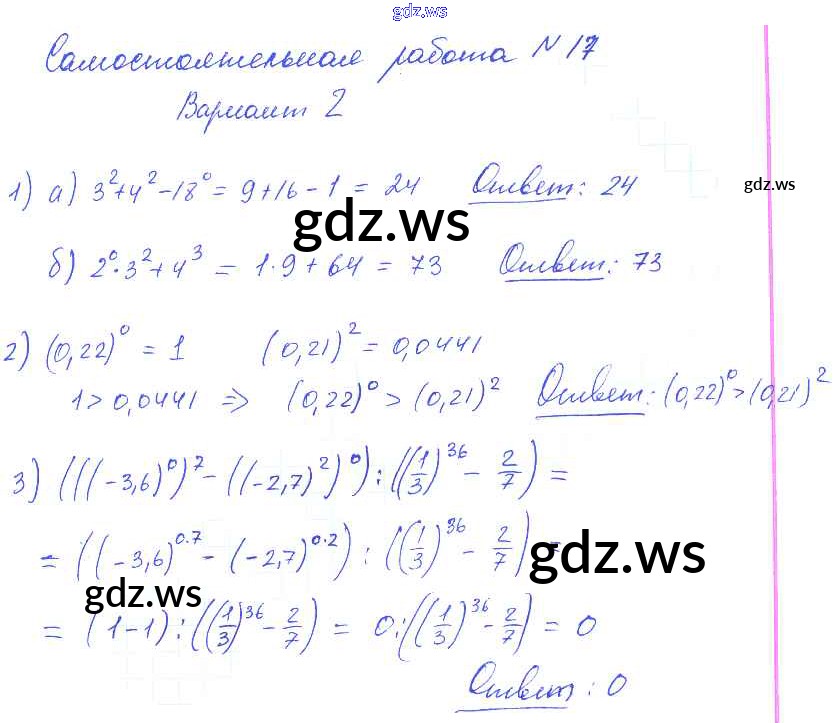 gdz.ws
Самостоятельная работа N 17
Вариант 2
1) а) 3²+4²-18⁰ = 9+16-1 = 24 Ответ: 24
gdz.ws
gdz.ws
б) 2⁰·3²+4³ = 1·9+64 = 73 Ответ: 73
2) (0,22)⁰ = 1 (0,21)² = 0,0441
1>0,0441 => (0,22)⁰ > (0,21)² Ответ: (0,22)⁰>(0,21)²
3) (((-3,6)⁰)⁷-((-2,7)²)⁰):((1/3)³⁶-2/7)=
= ((-3,6)⁰·⁷-(-2,7)⁰·²):((1/3)³⁶-2/7)=
gdz.ws
gdz.ws
= (1-1):((1/3)³⁶-2/7) = 0:((1/3)³⁶-2/7) = 0
Ответ: 0